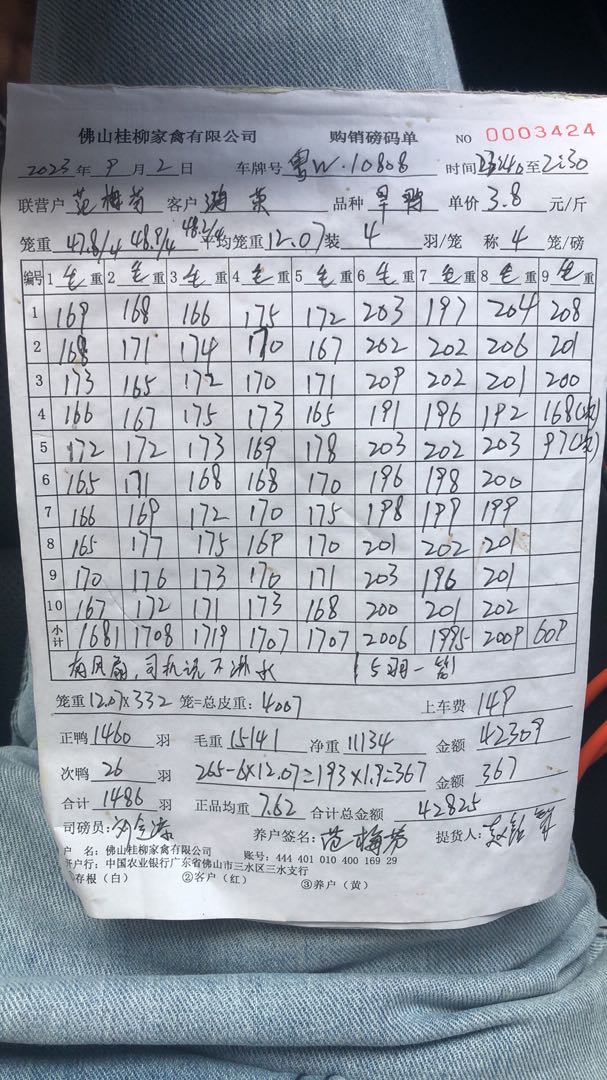 佛山桂柳家禽有限公司 购销磅码单 NO 0003424
2023年9月2日 车牌号 粤W·10808 时间 至2:30
联营户 范梅芳 客户 品种 旱鸭 单价3.8元/斤
笼重 47.8/4 48.9/4 48.2/4 平均笼重12.07装4羽/笼 称4笼/磅
编号 1毛重 2毛重 3毛重 4毛重 5毛重 6毛重 7毛重 8毛重 9毛重
1 169 168 166 175 172 203 197 204 208
2 168 171 174 170 167 202 202 206 201
3 173 165 172 170 171 209 202 201 200
4 166 167 175 173 165 191 196 192 168(次)
5 172 172 173 169 178 203 202 203 97(次)
6 165 171 168 168 170 196 198 200
7 166 169 172 170 175 198 199 199
8 165 177 175 169 170 201 202 201
9 170 176 173 170 171 203 196 201
10 167 172 171 173 168 200 201 202
小计 1681 1708 1719 1707 1707 2006 1995 2009 609
有风扇,司机说不淋水 15羽一笼
笼重12.07×332笼=总皮重:4007 上车费 149
正鸭1460羽 毛重15141 净重11134 金额42309
次鸭26羽 265-6×12.07=193×1.9=367 金额367
合计1486羽 正品均重7.62 合计总金额42825
司磅员: 养户签名:范梅芳 提货人:
户 名:佛山桂柳家禽有限公司 账号:444 401 010 400 169 29
开户行:中国农业银行广东省佛山市三水区三水支行
存根(白) ②客户(红) ③养户(黄)